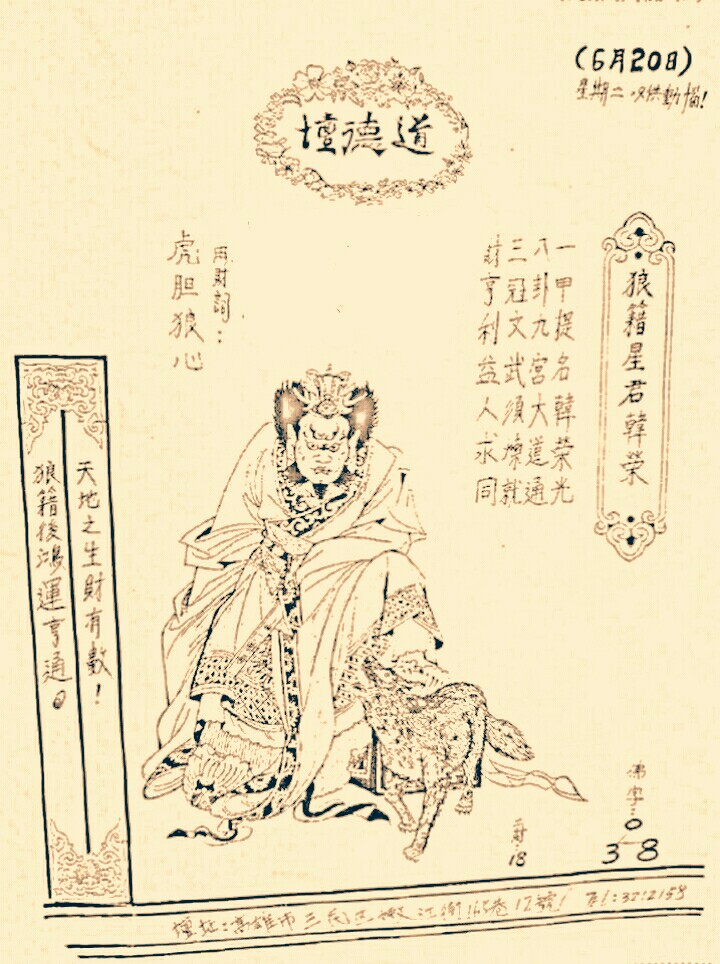 (6月20日)
星期二 只供動惱!
道德壇
狼籍星君韓荣
一甲提名韓荣光
八卦九宮大道通
三冠文武須煉就
財亨利益人求同
丙財詞：
虎胆狼心
天地之生財有數！
狼籍後鴻運亨通。
佛字：
0
3 8
財
18
壇址：高雄市三民区 江街165巷12號！ Tel：3212158